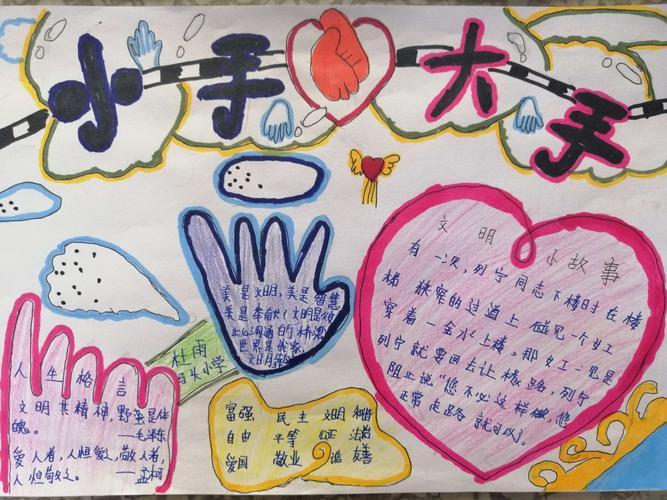 小手
大手
文明
小故事
有一次,列宁同志下楼时在楼
梯狭窄的过道上碰见一个女工
端着一盆水上楼。那女工一见是
列宁就要回去让楼路,列宁
阻止说"您不必这样做,您
正常走路就可以。
美是文明,美是智慧
美是奉献,文明是
世界是我家
杜雨
富强 民主 文明 和谐
自由 平等 公正 法治
爱国 敬业 友善
人生格言
文明其精神,野蛮是体
魄。
——毛泽东
爱人者,人恒爱之,敬人者,
人恒敬之。 ——孟柯